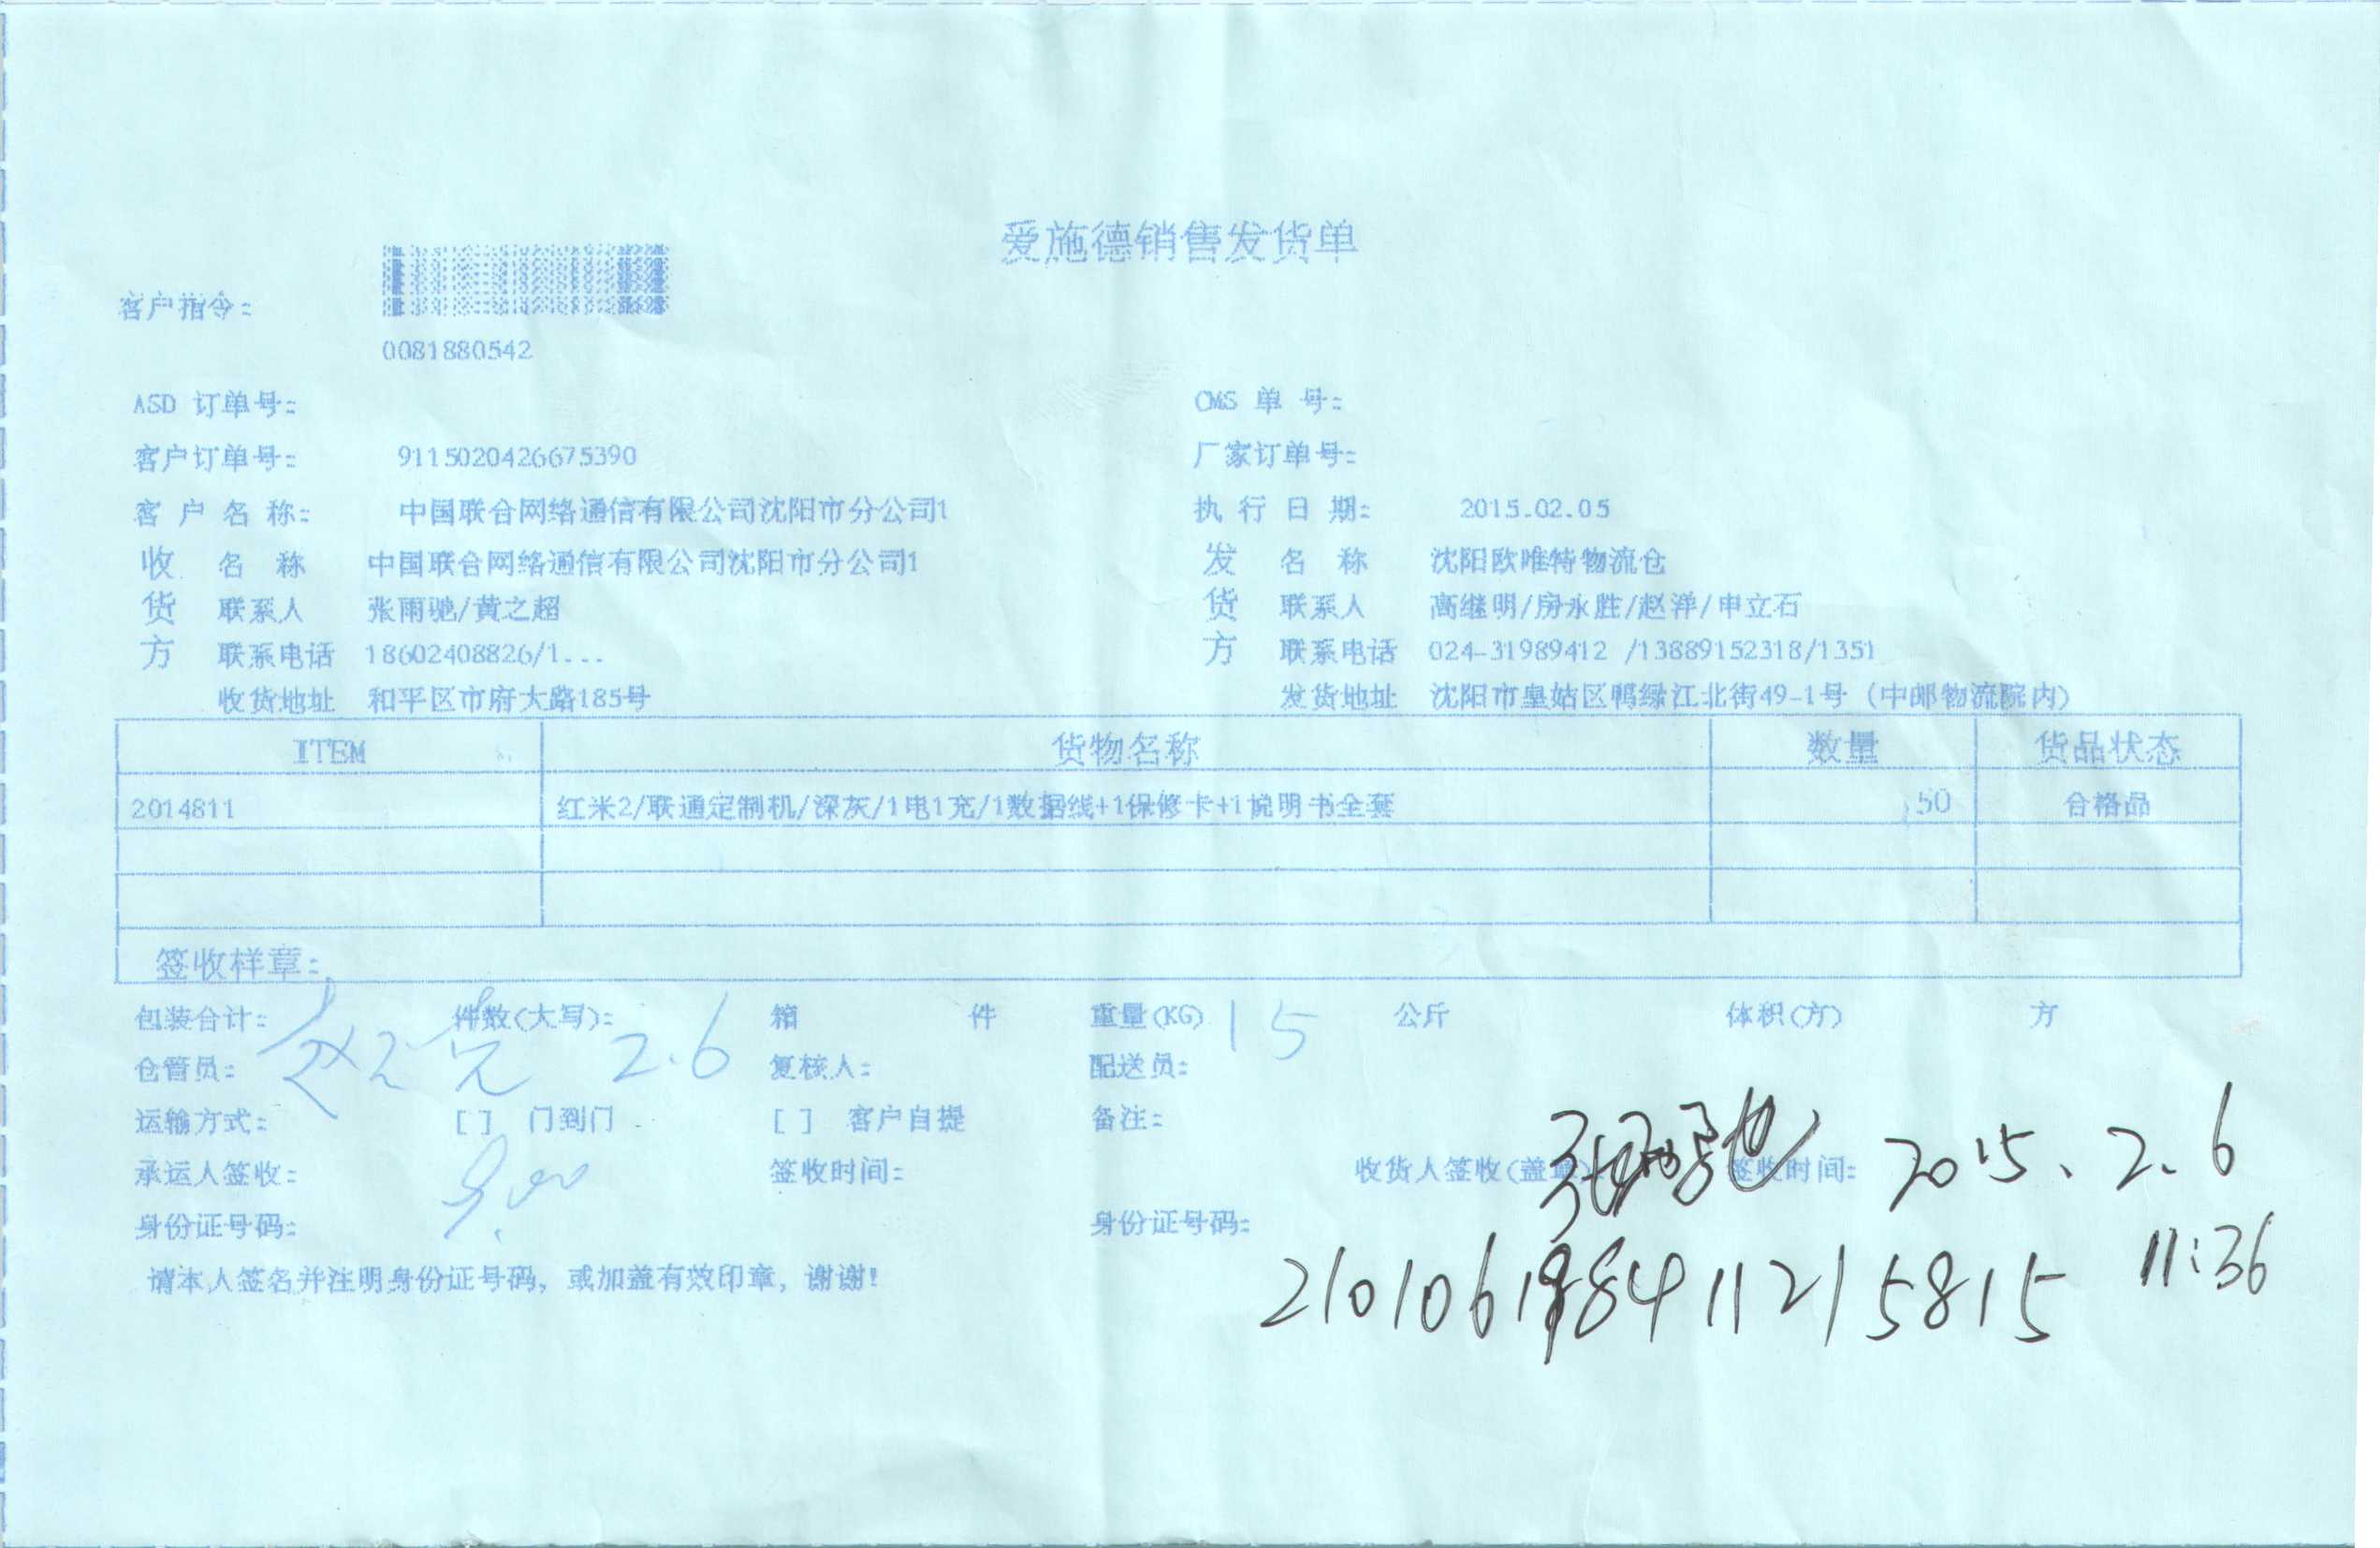 爱施德销售发货单
客户指令:
0081880542
ASD 订单号: CMS 单 号:
客户订单号: 9115020426675390 厂家订单号:
客 户 名 称: 中国联合网络通信有限公司沈阳市分公司1 执 行 日 期: 2015.02.05
收 名 称 中国联合网络通信有限公司沈阳市分公司1 发 名 称 沈阳欧唯特物流仓
货 联系人 张雨驰/黄之超 货 联系人 高继明/房永胜/赵洋/申立石
方 联系电话 18602408826/1... 方 联系电话 024-31989412 /13889152318/1351
收货地址 和平区市府大路185号 发货地址 沈阳市皇姑区鸭绿江北街49-1号 (中邮物流院内)
ITEM 货物名称 数量 货品状态
2014811 红米2/联通定制机/深灰/1电1充/1数据线+1保修卡+1说明书全套 50 合格品
签收样章:
包装合计: 件数(大写): 箱 件 重量(KG) 15 公斤 体积(方) 方
仓管员: 2.6 复核人: 配送员:
运输方式: [ ] 门到门 [ ] 客户自提 备注:
承运人签收: 签收时间: 收货人签收(盖章) 张雨驰 签收时间: 2015.2.6
身份证号码: 身份证号码: 210106198411215815 11:36
请本人签名并注明身份证号码, 或加盖有效印章, 谢谢!